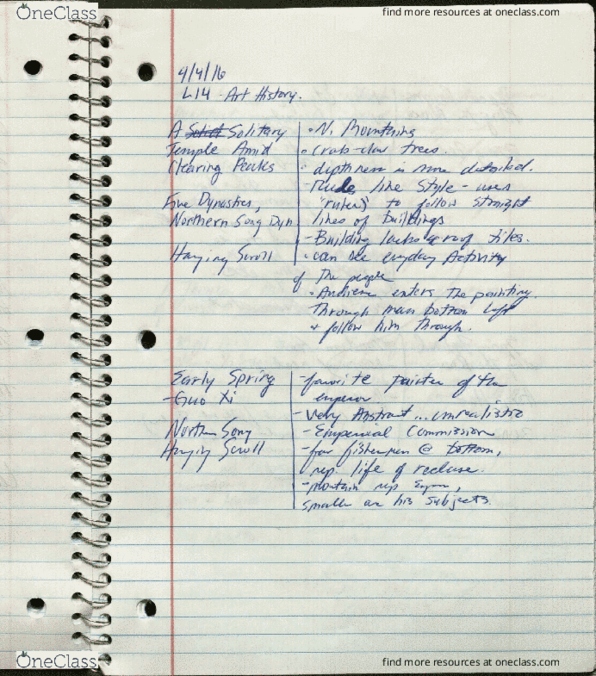 OneClass
find more resources at oneclass.com
4/4/16
L14 - Art History.
A Solitary
Temple Amid
Clearing Peaks
Five Dynasties,
Northern Song Dyn
Hanging Scroll
• N. Mounting
• Crab-claw trees.
• depthness is more detailed.
- Rule line Style - uses
"rulers" to follow straight
lines of buildings
- Building lacks roof tiles.
• can see everyday Activity
of the people
• Audience enters the painting
through man bottom left
+ follow him through.
Early Spring
- Guo Xi
Northern Song
Hanging Scroll
- favorite painter of the
emperor
- Very Abstract ... unrealistic
- Emperial Commission
- few fisherman @ bottom,
rep. life of recluse.
- mountain rep
smaller are his subjects.
OneClass
find more resources at oneclass.com